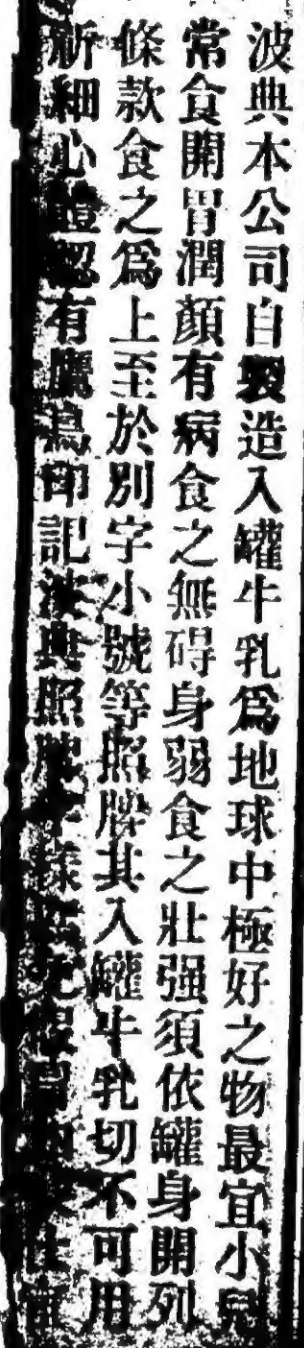 波典本公司自製造入罐牛乳爲地球中極好之物最宜小兒
常食開胃潤顏有病食之無碍身弱食之壯强須依罐身開列
條款食之爲上至於別字小號等照牌其入罐牛乳切不可用
祈細心認有鷹鳥印記波典照牌樣